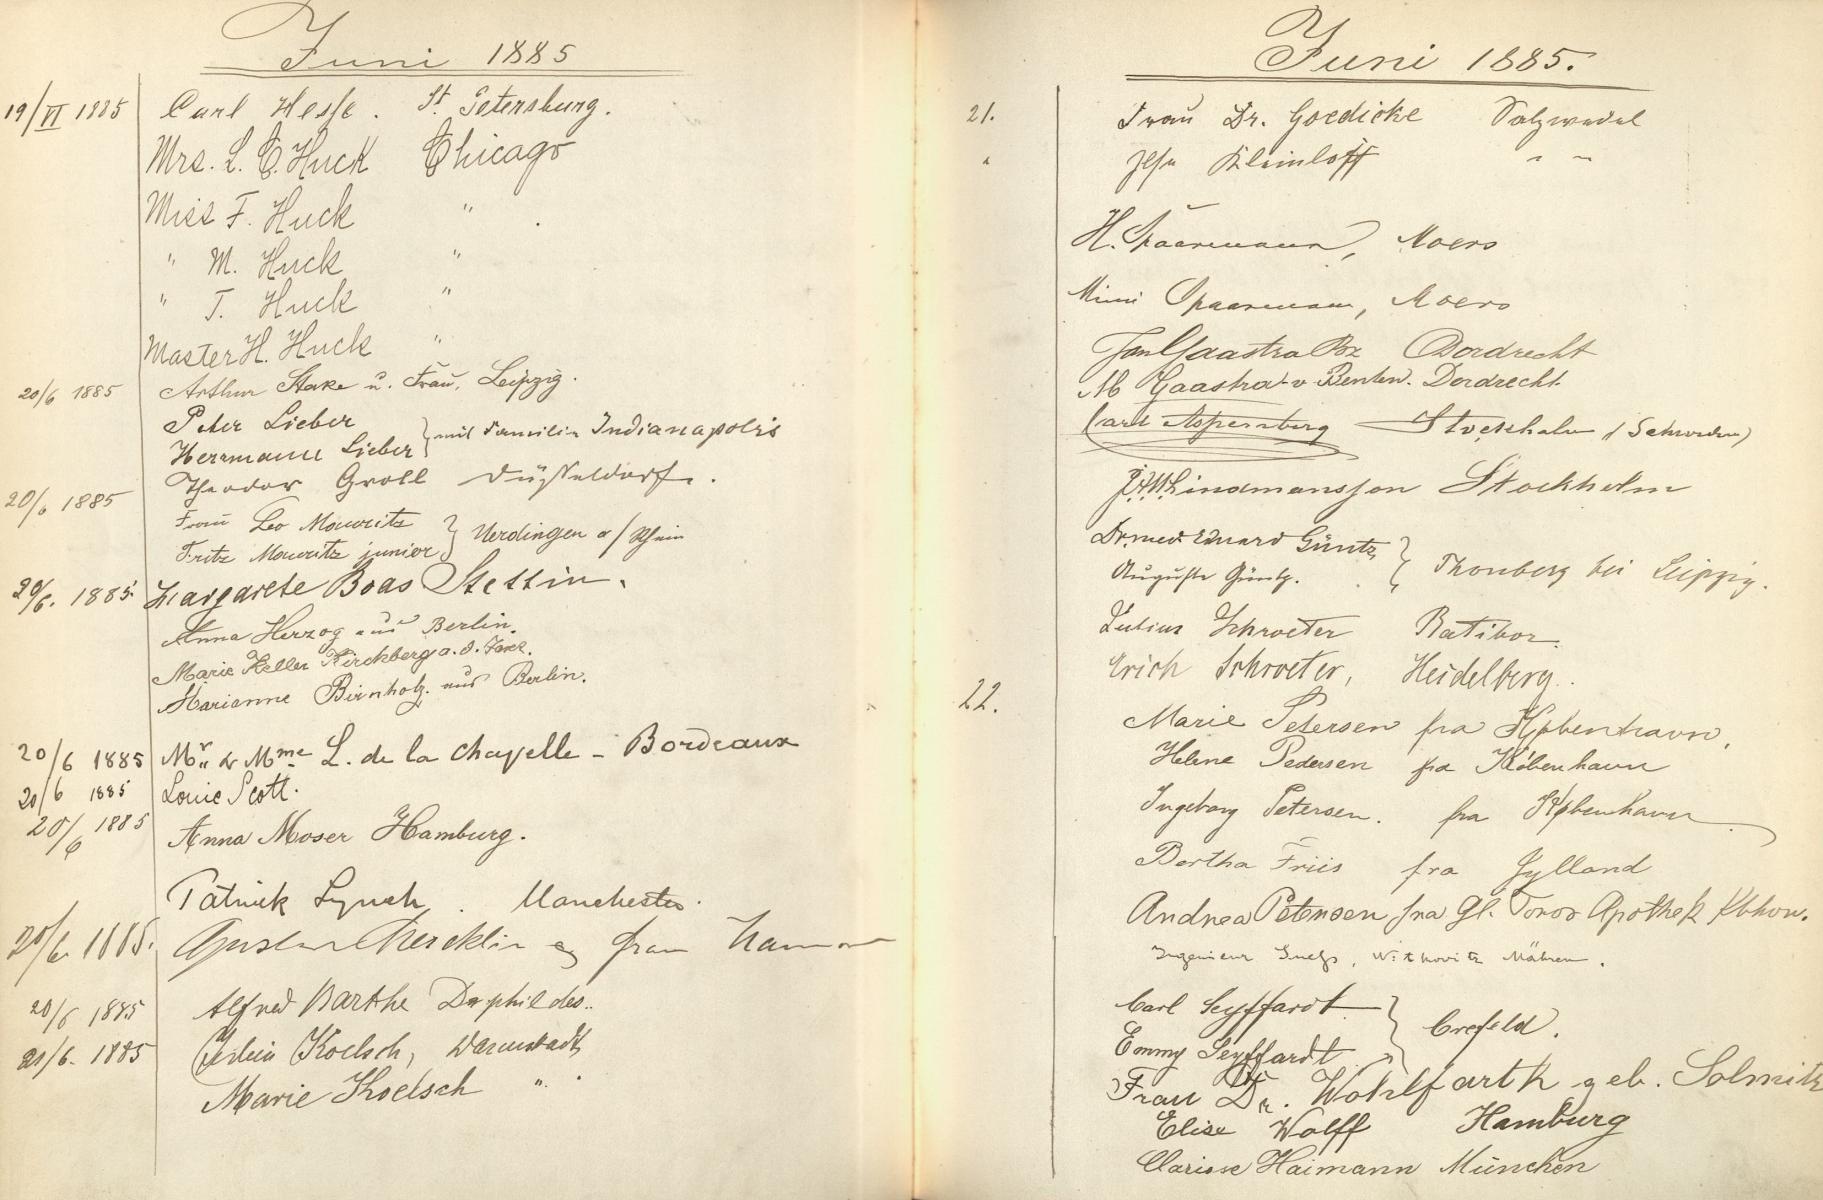 Juni 1885
19/VI 1885 Carl Hesse. St. Petersburg.
Mrs. L. C. Huck Chicago
Miss F. Huck "
" M. Huck "
" T. Huck "
Master H. Huck "
20/6 1885 Arthur Stake u. Frau, Leipzig.
Peter Lieber
Herrmann Lieber } mit Familie Indianapolis
Theodor Groll Düsseldorf.
20/6 1885 Frau Leo Mauritz
Fritz Mauritz junior } Uerdingen a/Rhein
20/6. 1885 Margarete Boas Stettin.
Anna Herzog aus Berlin.
Marie Keller Kirchberg a. d.
Marianne Birnholz aus Berlin.
20/6 1885 Mr & Mme L. de la Chapelle - Bordeaux
20/6 1885 Louie Scott.
20/6 1885 Anna Moser Hamburg.
Patrick Lynch. Manchester.
20/6 1885.
20/6 1885 Alfred Barthe Dr phil des..
21/6. 1885 Koelsch, Darmstadt
Marie Koelsch "
Juni 1885.
21. Frau Dr. Goedicke Salzwedel
" " "
H. Spaarmann, Moers
Mimi Spaarmann, Moers
Jan Gaastra Bz Dordrecht
M Gaastra - v Benten. Dordrecht.
Carl Aspernberg Stockholm (Schweden)
Lindmansson Stockholm
Dr. med. Eduard Güntz
Auguste Güntz. } Thonberg bei Leipzig.
Julius Schroeter Ratibor.
Erich Schroeter, Heidelberg.
22. Marie Petersen fra Kjøbenhavn.
Helene Pedersen fra København
Ingeborg Petersen. fra Kjøbenhavn
Bertha Friis fra Jylland
Andrea Petersen fra Gl. Torvs Apothek Kbhvn.
Ingenieur, Witkowitz Mähren.
Carl Seyffardt
Emmy Seyffardt } Crefeld.
Frau Dr. Wohlfarth geb. Solmitz
Elise Wolff Hamburg
Clarisse Haimann München